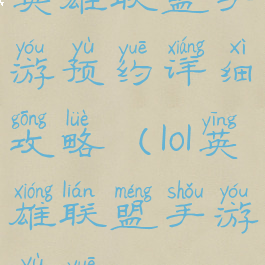 英雄联盟手
yóu yù yuē xiáng xì
游预约详细
gōng lüè yīng
攻略（lol英
xióng lián méng shǒu yóu
雄联盟手游
yù yuē